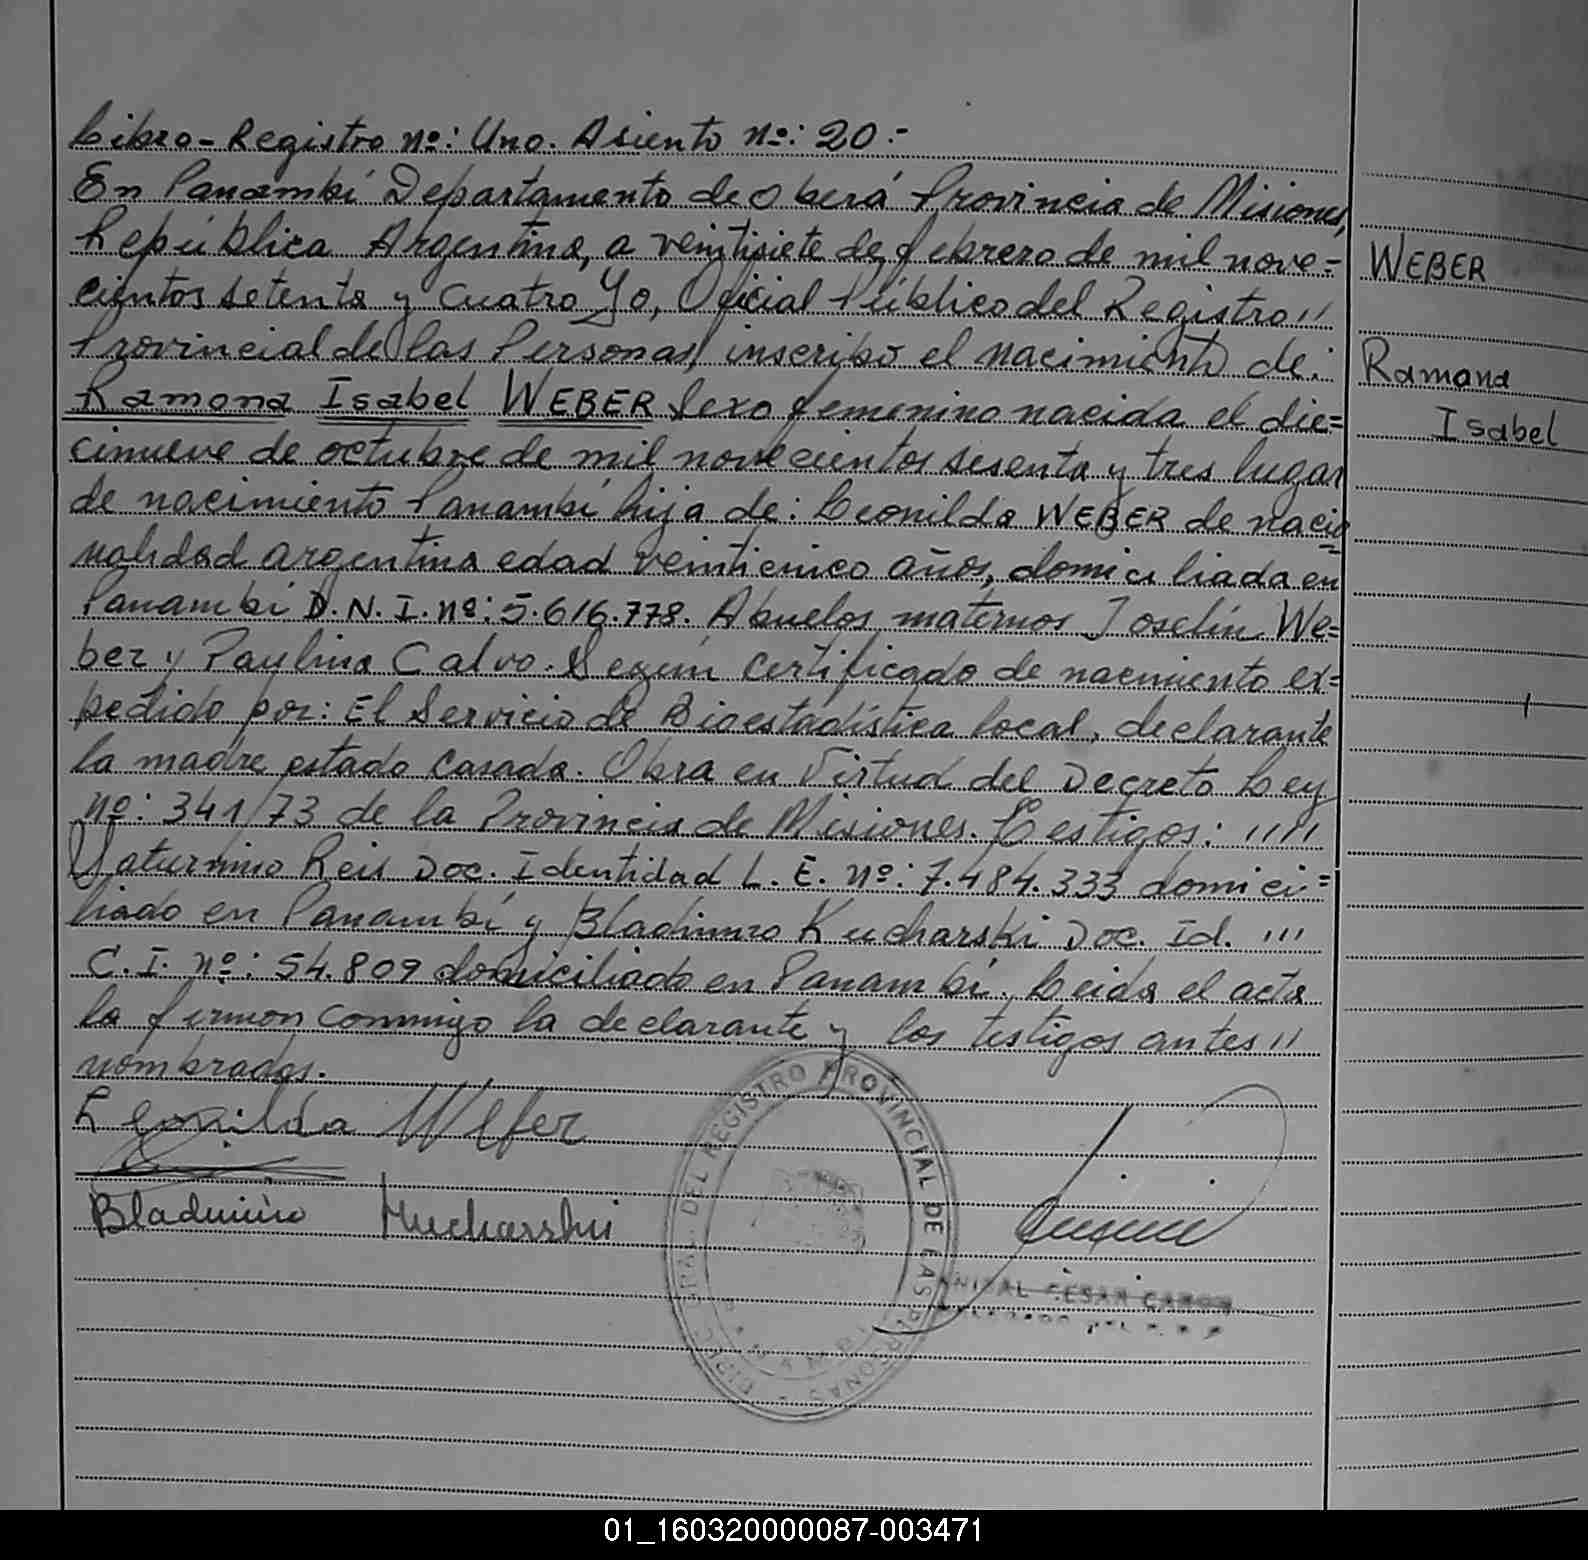 Libro-Registro nº: Uno. Asiento nº: 20.-
En Panambí Departamento de Oberá Provincia de Misiones,
República Argentina, a veintisiete de febrero de mil nove=
cientos setenta y cuatro Yo, Oficial Público del Registro //
Provincial de las Personas, inscribo el nacimiento de:
Ramona Isabel WEBER Sexo femenino nacida el die=
cinueve de octubre de mil novecientos sesenta y tres lugar
de nacimiento Panambí hija de: Leonilda WEBER de nacio
nalidad argentina edad veinticinco años, domiciliada en
Panambí D.N.I. nº: 5.616.778. Abuelos maternos Joselín We=
ber y Paulina Calvo. Según certificado de nacimiento ex=
pedido por: El Servicio de Bioestadística local, declarante
la madre estado casada. Obra en Virtud del Decreto Ley
nº: 341/73 de la Provincia de Misiones. Testigos: /////
Saturnino Reis Doc. Identidad L.E. nº: 7.484.333 domici=
liado en Panambí y Bladimiro Kucharski Doc. Id. ///
C.I. nº: 54.809 domiciliado en Panambí. Leida el acta
la firman conmigo la declarante y los testigos antes //
nombrados.
Leonilda Weber
Bladimiro Kucharski
WEBER
Ramona
Isabel
DIREC. GRAL. DEL REGISTRO PROVINCIAL DE LAS PERSONAS
PANAMBI
ANIBAL CESAR
01_160320000087-003471